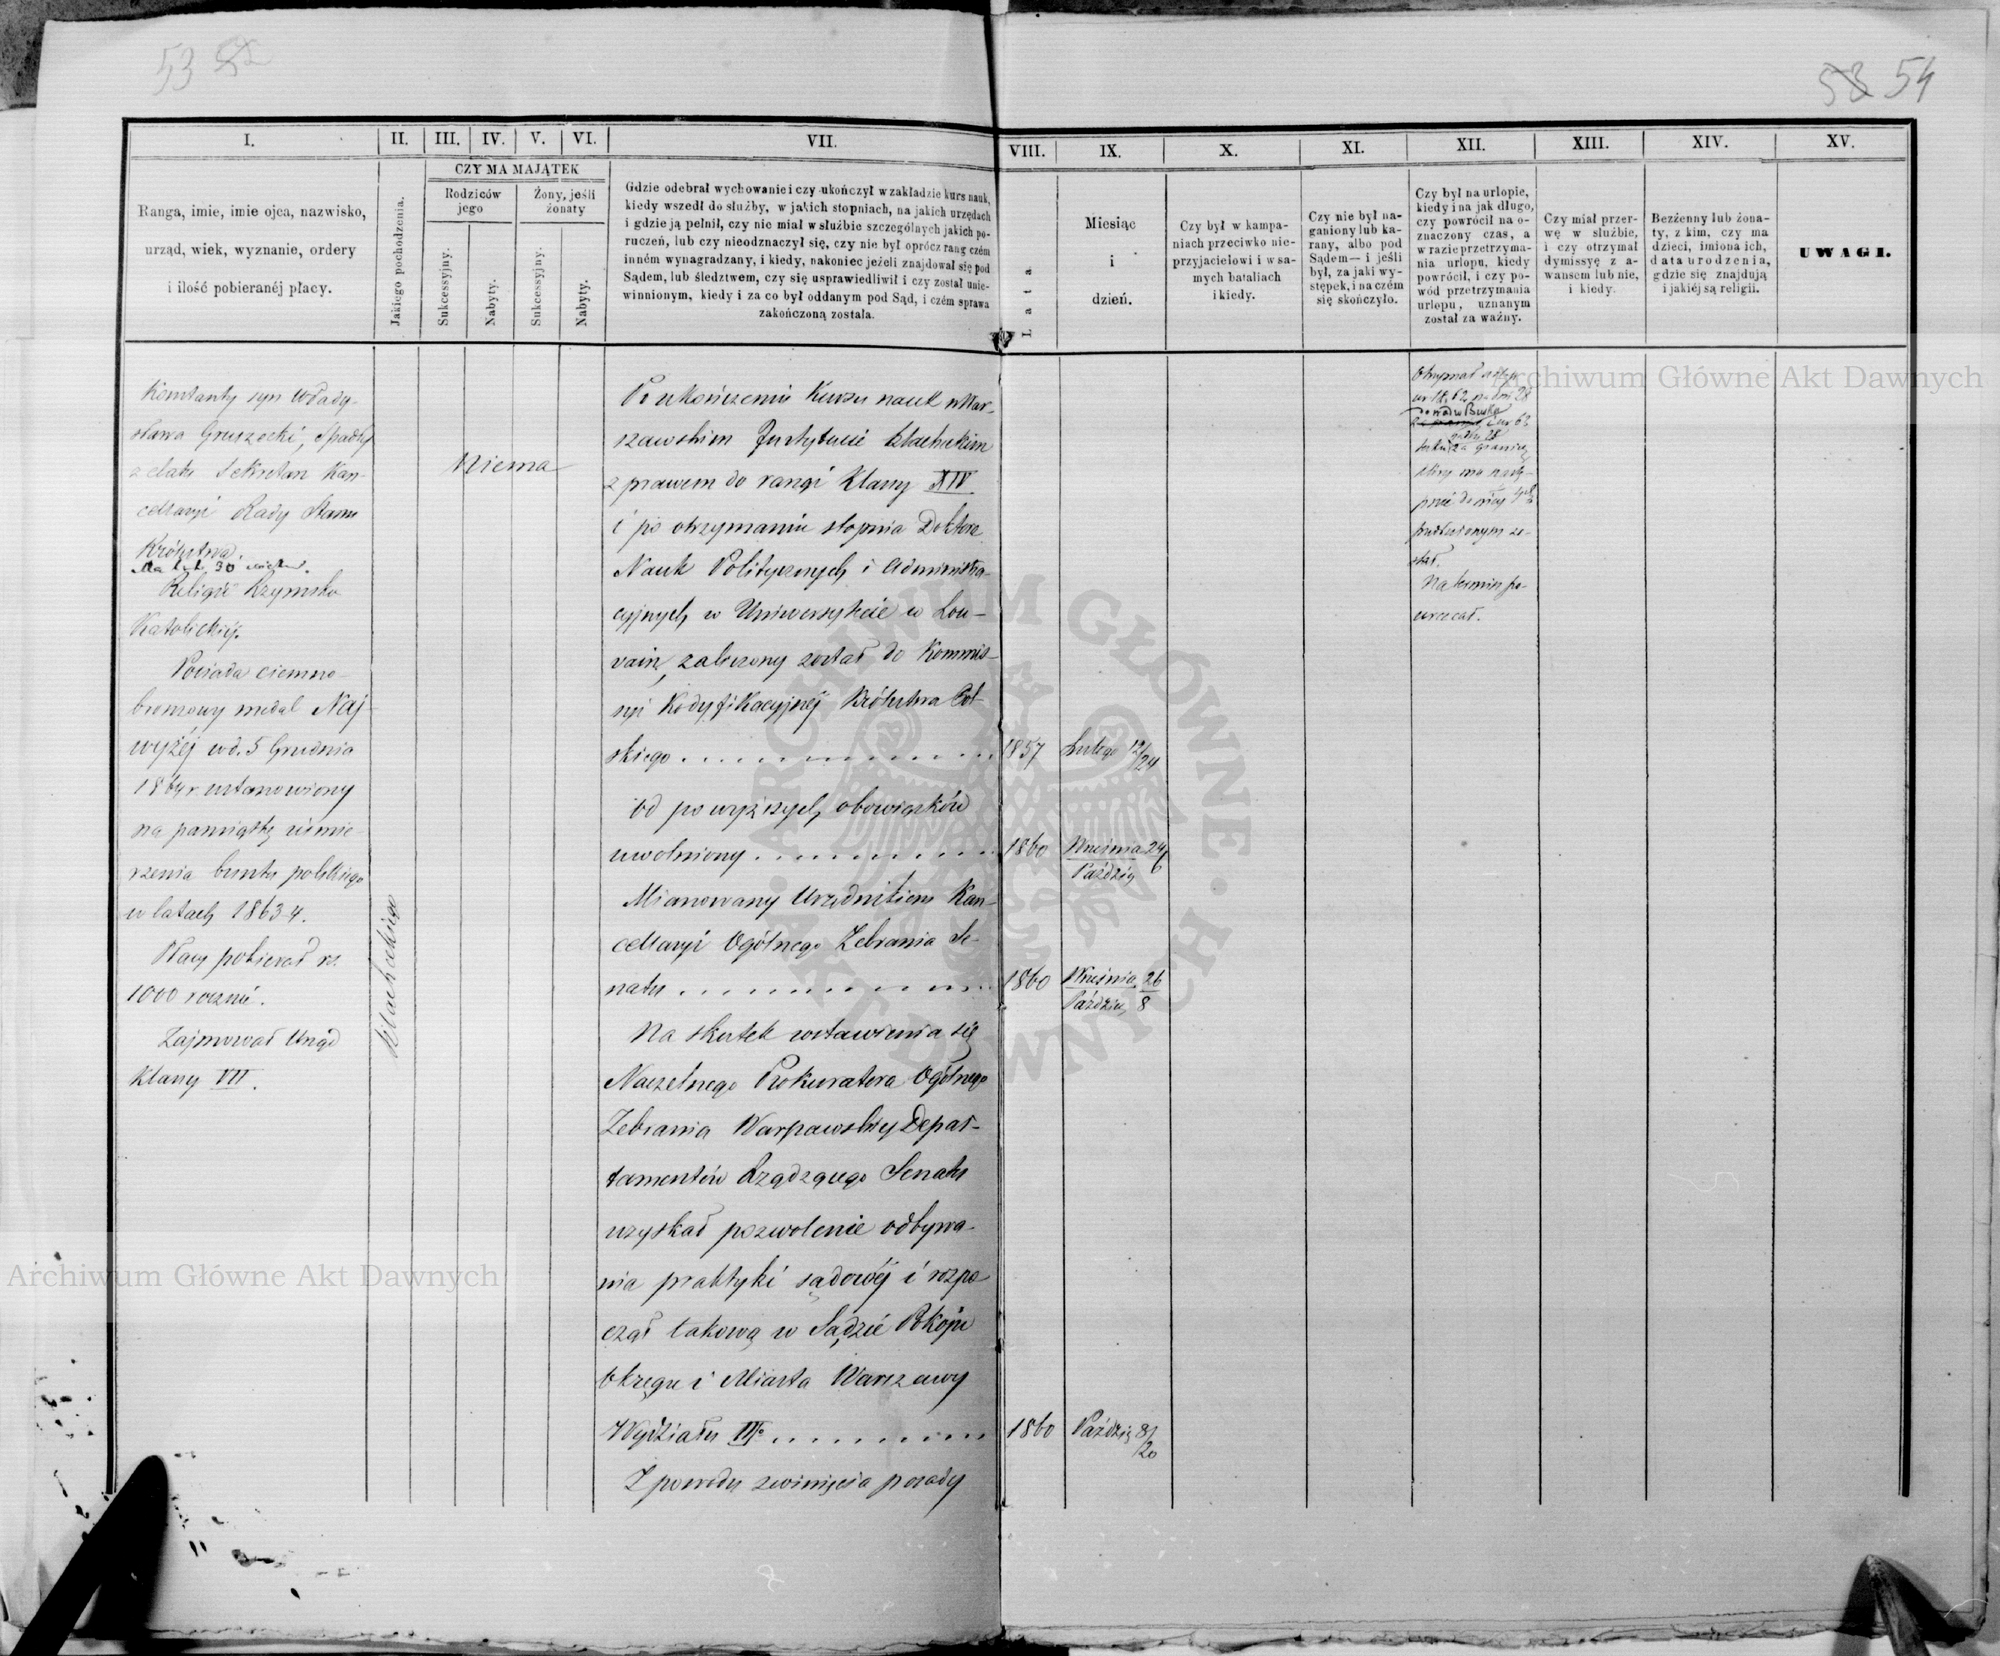 53 52
58 54
I.
II.
III.
IV.
V.
VI.
VII.
VIII.
IX.
X.
XI.
XII.
XIII.
XIV.
XV.
Ranga, imie, imie ojca, nazwisko,
urząd, wiek, wyznanie, ordery
i ilość pobieranéj płacy.
Jakiego pochodzenia.
CZY MA MAJĄTEK
Rodziców
jego
Żony, jeśli
żonaty
Sukcessyjny.
Nabyty.
Sukcessyjny.
Nabyty.
Gdzie odebrał wychowanie i czy ukończył w zakładzie kurs nauk,
kiedy wszedł do służby, w jakich stopniach, na jakich urzędach
i gdzie ją pełnił, czy nie miał w służbie szczególnych jakich po-
ruczeń, lub czy nieodznaczył się, czy nie był oprócz rang czém
inném wynagradzany, i kiedy, nakoniec jeżeli znajdował się pod
Sądem, lub śledztwem, czy się usprawiedliwił i czy został unie-
winnionym, kiedy i za co był oddanym pod Sąd, i czém sprawa
zakończoną została.
Lata
Miesiąc
i
dzień.
Czy był w kampa-
niach przeciwko nie-
przyjacielowi i w sa-
mych bataliach
i kiedy.
Czy nie był na-
ganiony lub ka-
rany, albo pod
Sądem — i jeśli
był, za jaki wy-
stępek, i na czém
się skończyło.
Czy był na urlopie,
kiedy i na jak długo,
czy powrócił na o-
znaczony czas, a
w razie przetrzyma-
nia urlopu, kiedy
powrócił, i czy po-
wód przetrzymania
urlopu, uznanym
został za ważny.
Czy miał przer-
wę w służbie,
i czy otrzymał
dymissyę z a-
wansem lub nie,
i kiedy.
Bezżenny lub żona-
ty, z kim, czy ma
dzieci, imiona ich,
data urodzenia,
gdzie się znajdują
i jakiéj są religii.
UWAGI.
Konstanty syn Włady-
sława Gruszecki, Spadły
z etatu Sekretarz Kan-
cellaryi Rady Stanu
Królestwa.
Ma lat 30
Religii Rzymsko
Katolickiéj.
Posiada ciemno-
bronzowy medal Naj-
wyżéj w d. 5 Grudnia
1864 r ustanowiony
na pamiątkę uśmie-
rzenia buntu polskiego
w latach 1863-4.
Płacy pobierał rs.
1000 rocznie.
Zajmował Urząd
Klassy VII.
Szlacheckiego
Niema
Po ukończeniu Kursu nauk w War-
szawskim Instytucie Szlacheckim
z prawem do rangi Klassy XIV
i po otrzymaniu stopnia Doktora
Nauk Politycznych i Administra-
cyjnych w Uniwersytecie w Lou-
vain, zaliczony został do Kommis-
syi Kodyfikacyjnéj Królestwa Pol-
skiego . . . . . . . . . . . . 1857 Lutego 12/24
Od powyższych obowiązków
uwolniony . . . . . . . . . . 1860 Września 24/ Paździer 6
Mianowany Urzędnikiem Kan-
cellaryi Ogólnego Zebrania Se-
natu . . . . . . . . . . . . 1860 Września 26 / Paździer 8
Na skutek wstawienia się
Naczelnego Prokuratora Ogólnego
Zebrania Warszawskich Depar-
tamentów Rządzącego Senatu
uzyskał pozwolenie odbywa-
nia praktyki sądowéj i rozpo-
czął takową w Sądzie Pokoju
Okręgu i Miasta Warszawy
Wydziału III° . . . . . . . . 1860 Paździer 8/20
Z powodu zwinięcia posady
Otrzymał urlop
w r. 1862 na dni 28
do wód w Busku
i w 63
za granicę
został.
Na termin po-
wracał.
Archiwum Główne Akt Dawnych
Archiwum Główne Akt Dawnych
ARCHIWUM GŁÓWNE AKT DAWNYCH